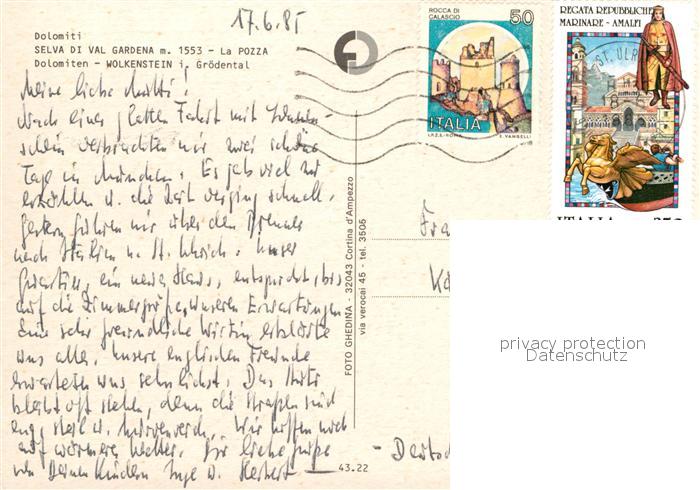 17.6.85
Dolomiti
SELVA DI VAL GARDENA m. 1553 - La POZZA
Dolomiten - WOLKENSTEIN i. Grödental
ROCCA DI
CALASCIO
50
ITALIA
I.P.Z.S.-ROMA E. VANGELLI
REGATA REPUBBLICHE
MARINARE - AMALFI
ST. ULR
ITALIA
Meine liebe Mutti!
Nach einer glatten Fahrt mit Sonnen-
schein verbrachten wir zwei schöne
Tage in München. Es gab viel zu
erzählen u. die Zeit verging schnell.
Gestern fuhren wir über den Brenner
nach Italien n. St. Ulrich. Unser
Quartier, ein neues Haus, entspricht, bis
auf die Zimmergröße, unseren Erwartungen.
Eine sehr freundliche Wirtin erklärte
uns alles. Unsere englischen Freunde
erwarteten uns sehnlichst. Das Auto
bleibt oft stehen, denn die Straßen sind
eng, steil u. kurvenreich. Wir hoffen noch
auf wärmeres Wetter. Für liebe Grüße
von Deinen Kindern Inge u. Herbert
FOTO GHEDINA - 32043 Cortina d'Ampezzo
via verocai 45 - tel. 3505
43.22
Fra
privacy protection
Datenschutz